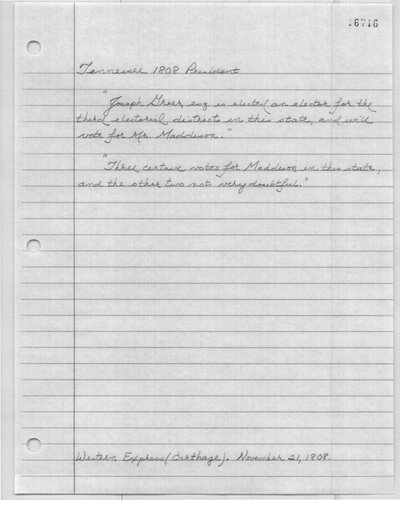 16716
Tennessee 1808 President
"Joseph Greer, esq is elected an elector for the
third electorial district in this state, and will
vote for Mr. Maddison."
"Three certain votes for Maddison in this state,
and the other two not very doubtful."
Western Express (Carthage). November 21, 1808.